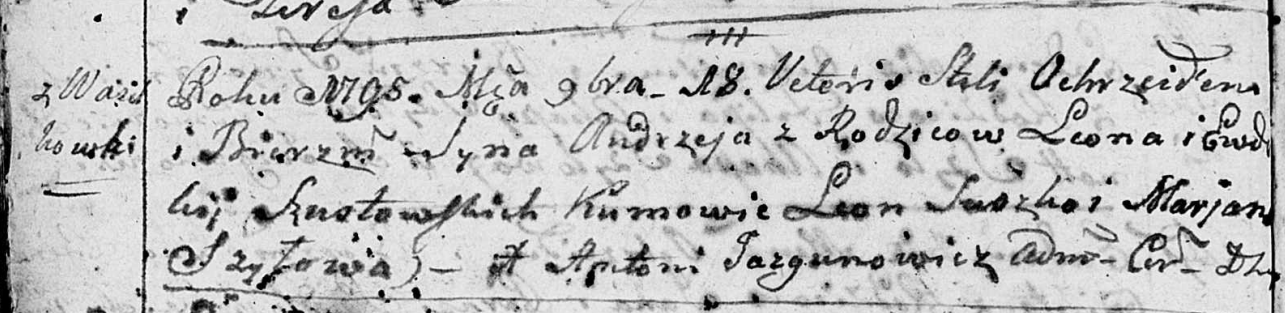 i Teresa
z Wasil
kowski
Roku 1795. Mca 9bra - 18. Vetoris Stili Ochrzciłem
i Bierzm Syna Andrzeja z Rodzicow Leona i Ewdo
kij Szustowskich Kumowie Leon Suszko i Marjan
Szyłowa - X Antoni Jazgunowicz Adm Cer